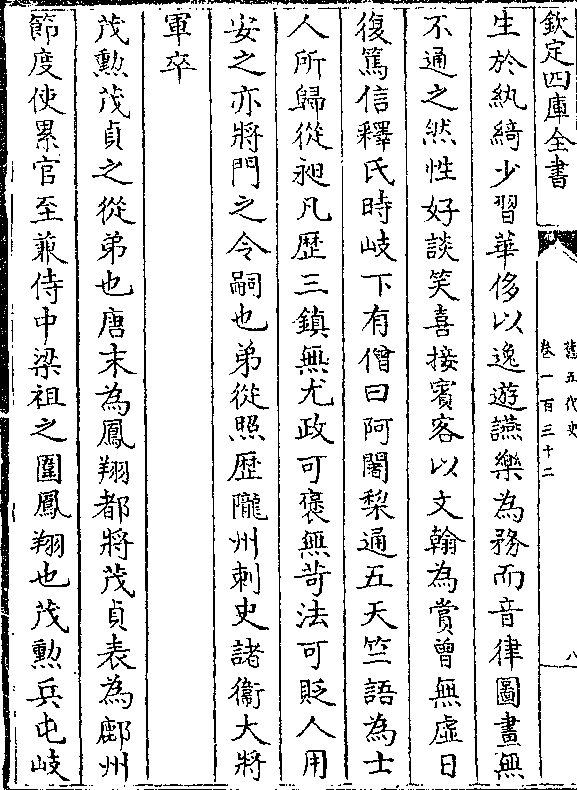 欽定四庫全書
舊五代史
卷一百三十二
八
生於紈綺少習華侈以逸遊讌樂為務而音律圖畫無
不通之然性好談笑喜接賓客以文翰為賞曾無虛日
復篤信釋氏時岐下有僧曰阿闍梨通五天竺語為士
人所歸從昶凡歴三鎮無尤政可褒無苛法可貶人用
安之亦將門之令嗣也弟從照歴隴州刺史諸衛大將
軍卒
茂勲茂貞之從弟也唐末為鳳翔都將茂貞表為鄜州
節度使累官至兼侍中梁祖之圍鳳翔也茂勲兵屯岐